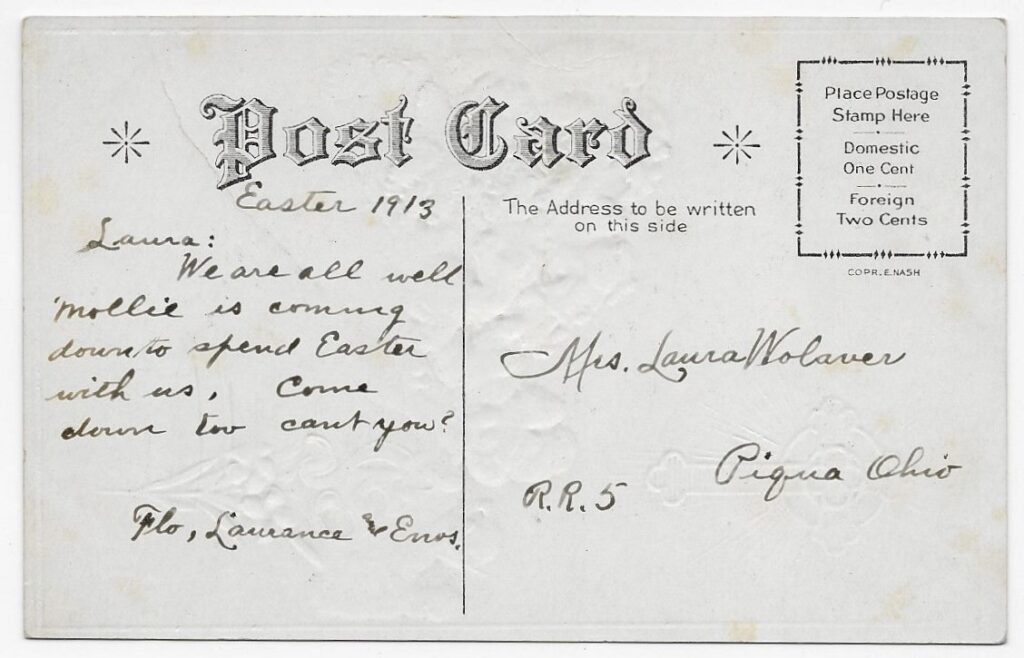 Post Card
Place Postage
Stamp Here
Domestic
One Cent
Foreign
Two Cents
COPR. E. NASH
The Address to be written
on this side
Easter 1913
Laura:
We are all well
Mollie is coming
down to spend Easter
with us, Come
down too cant you?
Flo, Laurance & Enos.
Mrs. Laura Wolaver
Piqua Ohio
R.R. 5